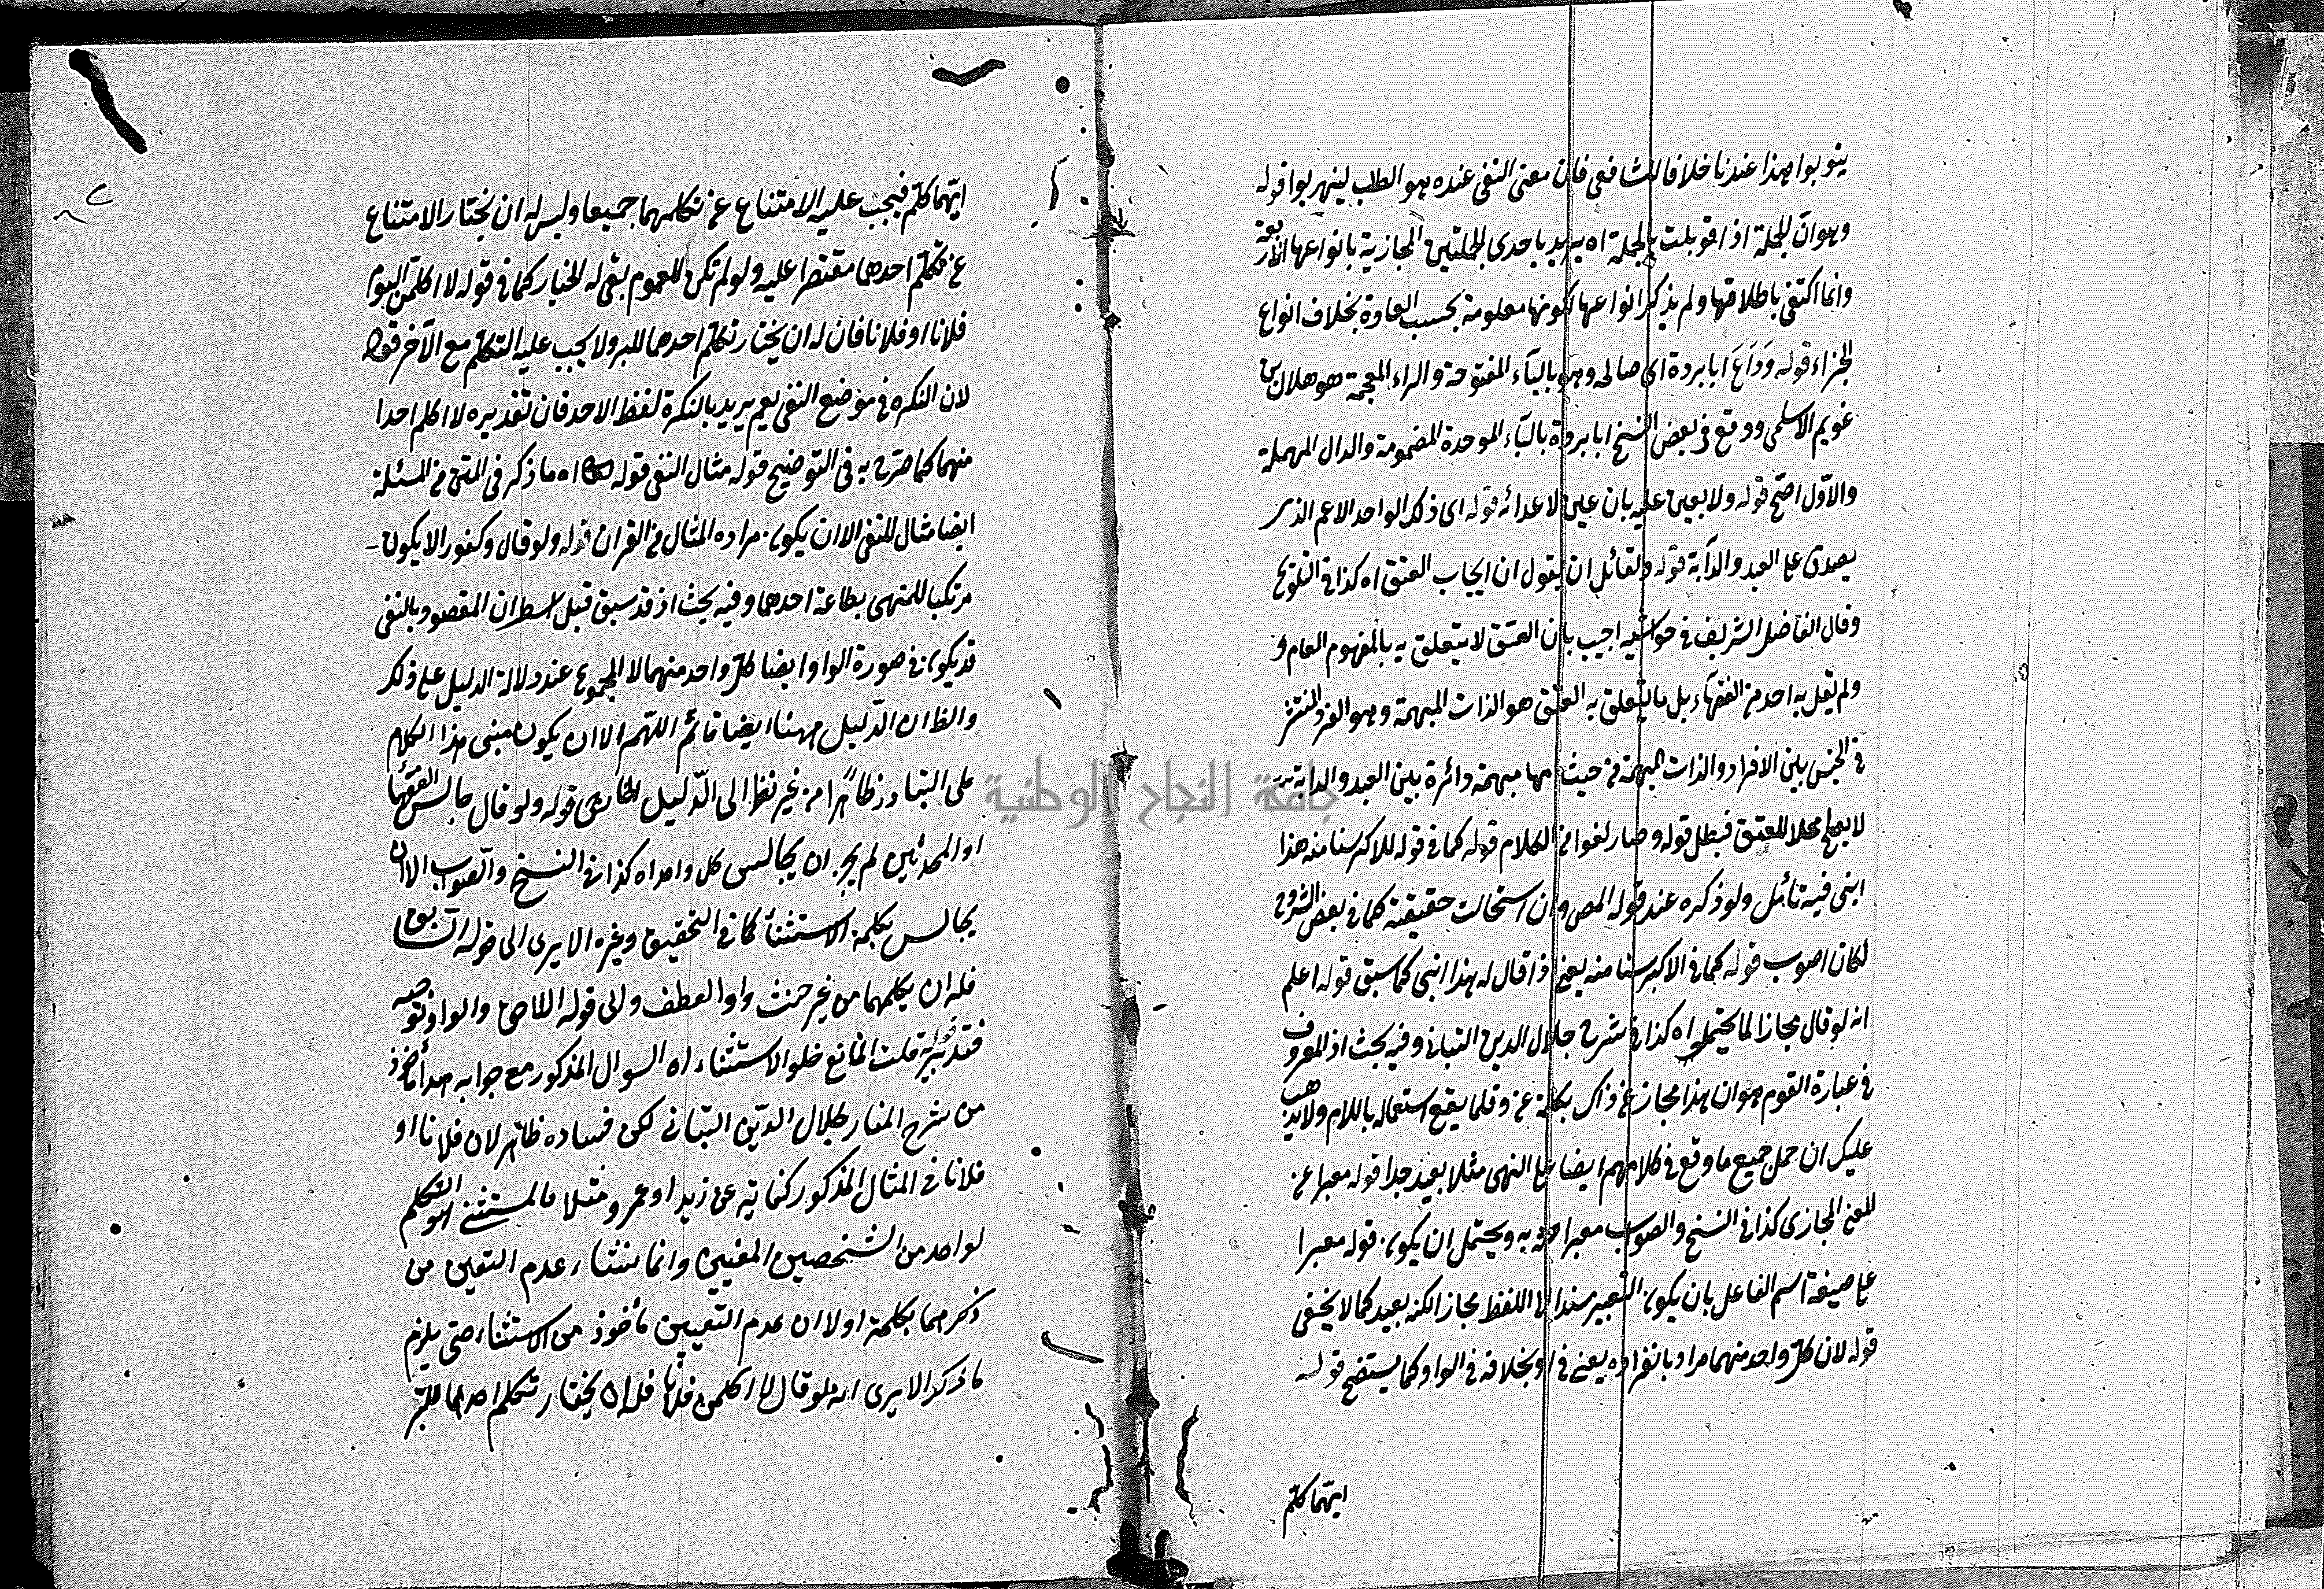 يتوبوا وهذا عندنا خلافا للشافعي فان معنى النفي عنده هو الطلب ليهربوا قوله
وهو ان الجملة اذا قوبلت بالجملة اه يريد باحدى الجملتين المجازية بانواعها الاربعة
وانما اكتفى باطلاقها ولم يذكر انواعها لكونها معلومة بحسب العادة بخلاف انواع
الجزاء قوله وَدَاعَ ابا بردة اى صالحه وهو بالباء المفتوحة والراء المعجمة هو هلال بن
عويم الاسلمى ووقع فى بعض النسخ ابا بردة بالباء الموحدة المضمومة والدال المهملة
والاول اصح قوله ولا يعين عليه بان يعين لا عدائه قوله اى ذلك الواحد الاعم الذى
يصدق على العبد والدابة قوله ولقائل ان يقول ان ايجاب العتق اه كذا فى التلويح
وقال الفاضل الشريف فى حواشيه اجيب بان العتق لا يتعلق به بالمفهوم العام و
ولم يقل به احد من الفقهاء بل ما يتعلق به العتق هو الذات المبهمة وهو الفرد المنتشر
فى الجنس بين الافراد والذات المبهمة من حيث انها مبهمة دائرة بين العبد والدابة
لا يصلح محلا للعتق فبطل قوله وصار لغوا فى الكلام قوله كما فى قوله للاكبر سنا منه هذا
ابنى فيه تأمل ولو ذكره عند قوله المص وان استحالت حقيقته كما فى بعض الشروح
لكان اصوب قوله كما فى الاكبر سنا منه يعنى اذا قال له هذا ابنى كما سبق قوله اعلم
انه لو قال مجازا لما يحتمله اه كذا فى شرح جلال الدين التبانى وفيه بحث اذ المعروف
فى عبارة القوم هو ان هذا مجاز عن ذاك بكلمة عن وقلما يقع استعماله باللام ولا يذهب
عليك ان حمل جميع ما وقع فى كلامهم ايضا على النهى مثلا بعيد جدا قوله معبرا عن
المعنى المجازى كذا فى النسخ والصواب معبرا به ويحتمل ان يكون قوله معبرا
على صيغة اسم الفاعل بان يكون التعبير مسندا الى اللفظ مجازا لكنه بعيد كما لا يخفى
قوله لان كل واحد منهما مراد بانفراده يعنى فى او بخلافه فى الواو كما يستفتح قوله
ايهما كلم
ايهما كلم فيجب عليه الامتناع عن تكلمهما جميعا وليس له ان يختار الامتناع
عن تكلم احدهما مقتصرا عليه ولو لم تكن للعموم بقى له الخيار كما فى قوله لا اكلمن اليوم
فلانا او فلانا فان له ان يختار تكلم احدهما للبر ولا يجب عليه التكلم مع الآخر قوله
لان النكره فى موضع النفى يعم يريد بالنكرة لفظ الاحد فان تقديره لا اكلم احدا
منهما كما صرح به فى التوضيح قوله مثال النفى قوله اه ما ذكر فى المتن من المسئلة
ايضا مثال للنفى الا ان يكون مراده المثال من القران قوله ولو قال وكفورا لا يكون
مرتكبا للمنهى بطاعة احدهما وفيه بحث اذ قد سبق قبل اسطر ان المقصود بالنفى
قد يكون فى صورة الواو ايضا كل واحد منهما لا المجموع عند دلالة الدليل على ذلك
والظ ان الدليل ههنا ايضا قائم اللهم الا ان يكون مبنى هذا الكلام
على التبادر ظاهرا من غير نظر الى الدليل الخارجى قوله ولو قال جالس الفقهاء
او المحدثين لم يجز ان يجالس كل واحد اه كذا فى النسخ والصواب الا ان
يجالس بكلمة الاستثناء كما فى التحقيق وغيره الا يرى الى قوله السابق
فله ان يكلمهما من غير حنث واو العطف والى قوله اللاحق والواو توجبه
فتدبر قلت المانع خلو الاستثناء اه السوال المذكور مع جوابه هذا مأخوذ
من شرح المنار لجلال الدين التبانى لكن فساده ظاهر لان فلانا او
فلانا فى المثال المذكور كناية عن زيد او عمرو مثلا فالمستثنى هو التكلم
لواحد من الشخصين المعنيين وانما نشاء عدم التعين من
ذكرهما بكلمة او لا ان عدم التعيين مأخوذ من الاستثناء حتى يلزم
ما ذكر الا يرى انه لو قال لا اكلمن فلانا فله ان يختار تكلم احدهما للبر
جامعة النجاح الوطنية